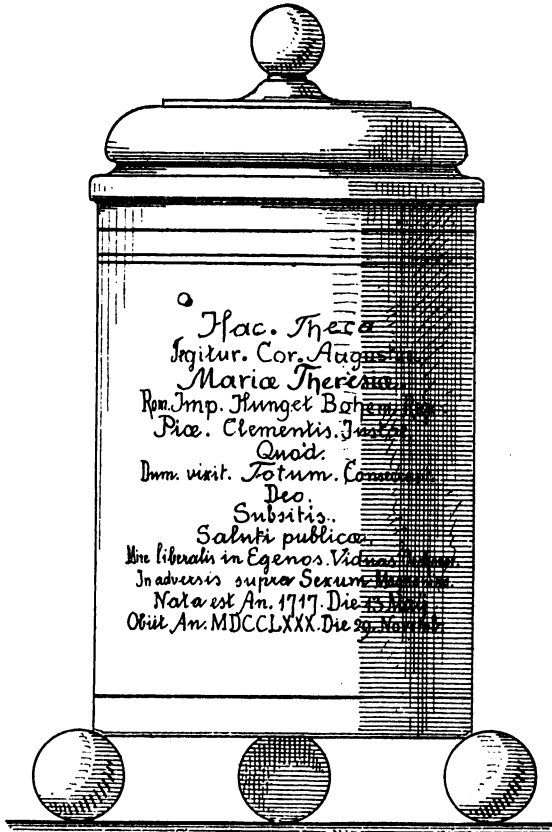 Hac. Theca
Tegitur. Cor. Augustæ
Mariæ Theresiæ.
Rom. Imp. Hung et Bohem. Reg.
Piæ. Clementis. Justæ.
Quod.
Dum. vixit. Totum.
Deo.
Subsitis.
Saluti publicæ.
Mire liberalis in Egenos. Viduas
In adversis supra Sexum
Nata est An. 1717. Die 13 Maij
Obiit An. MDCCLXXX. Die 29. Novemb.